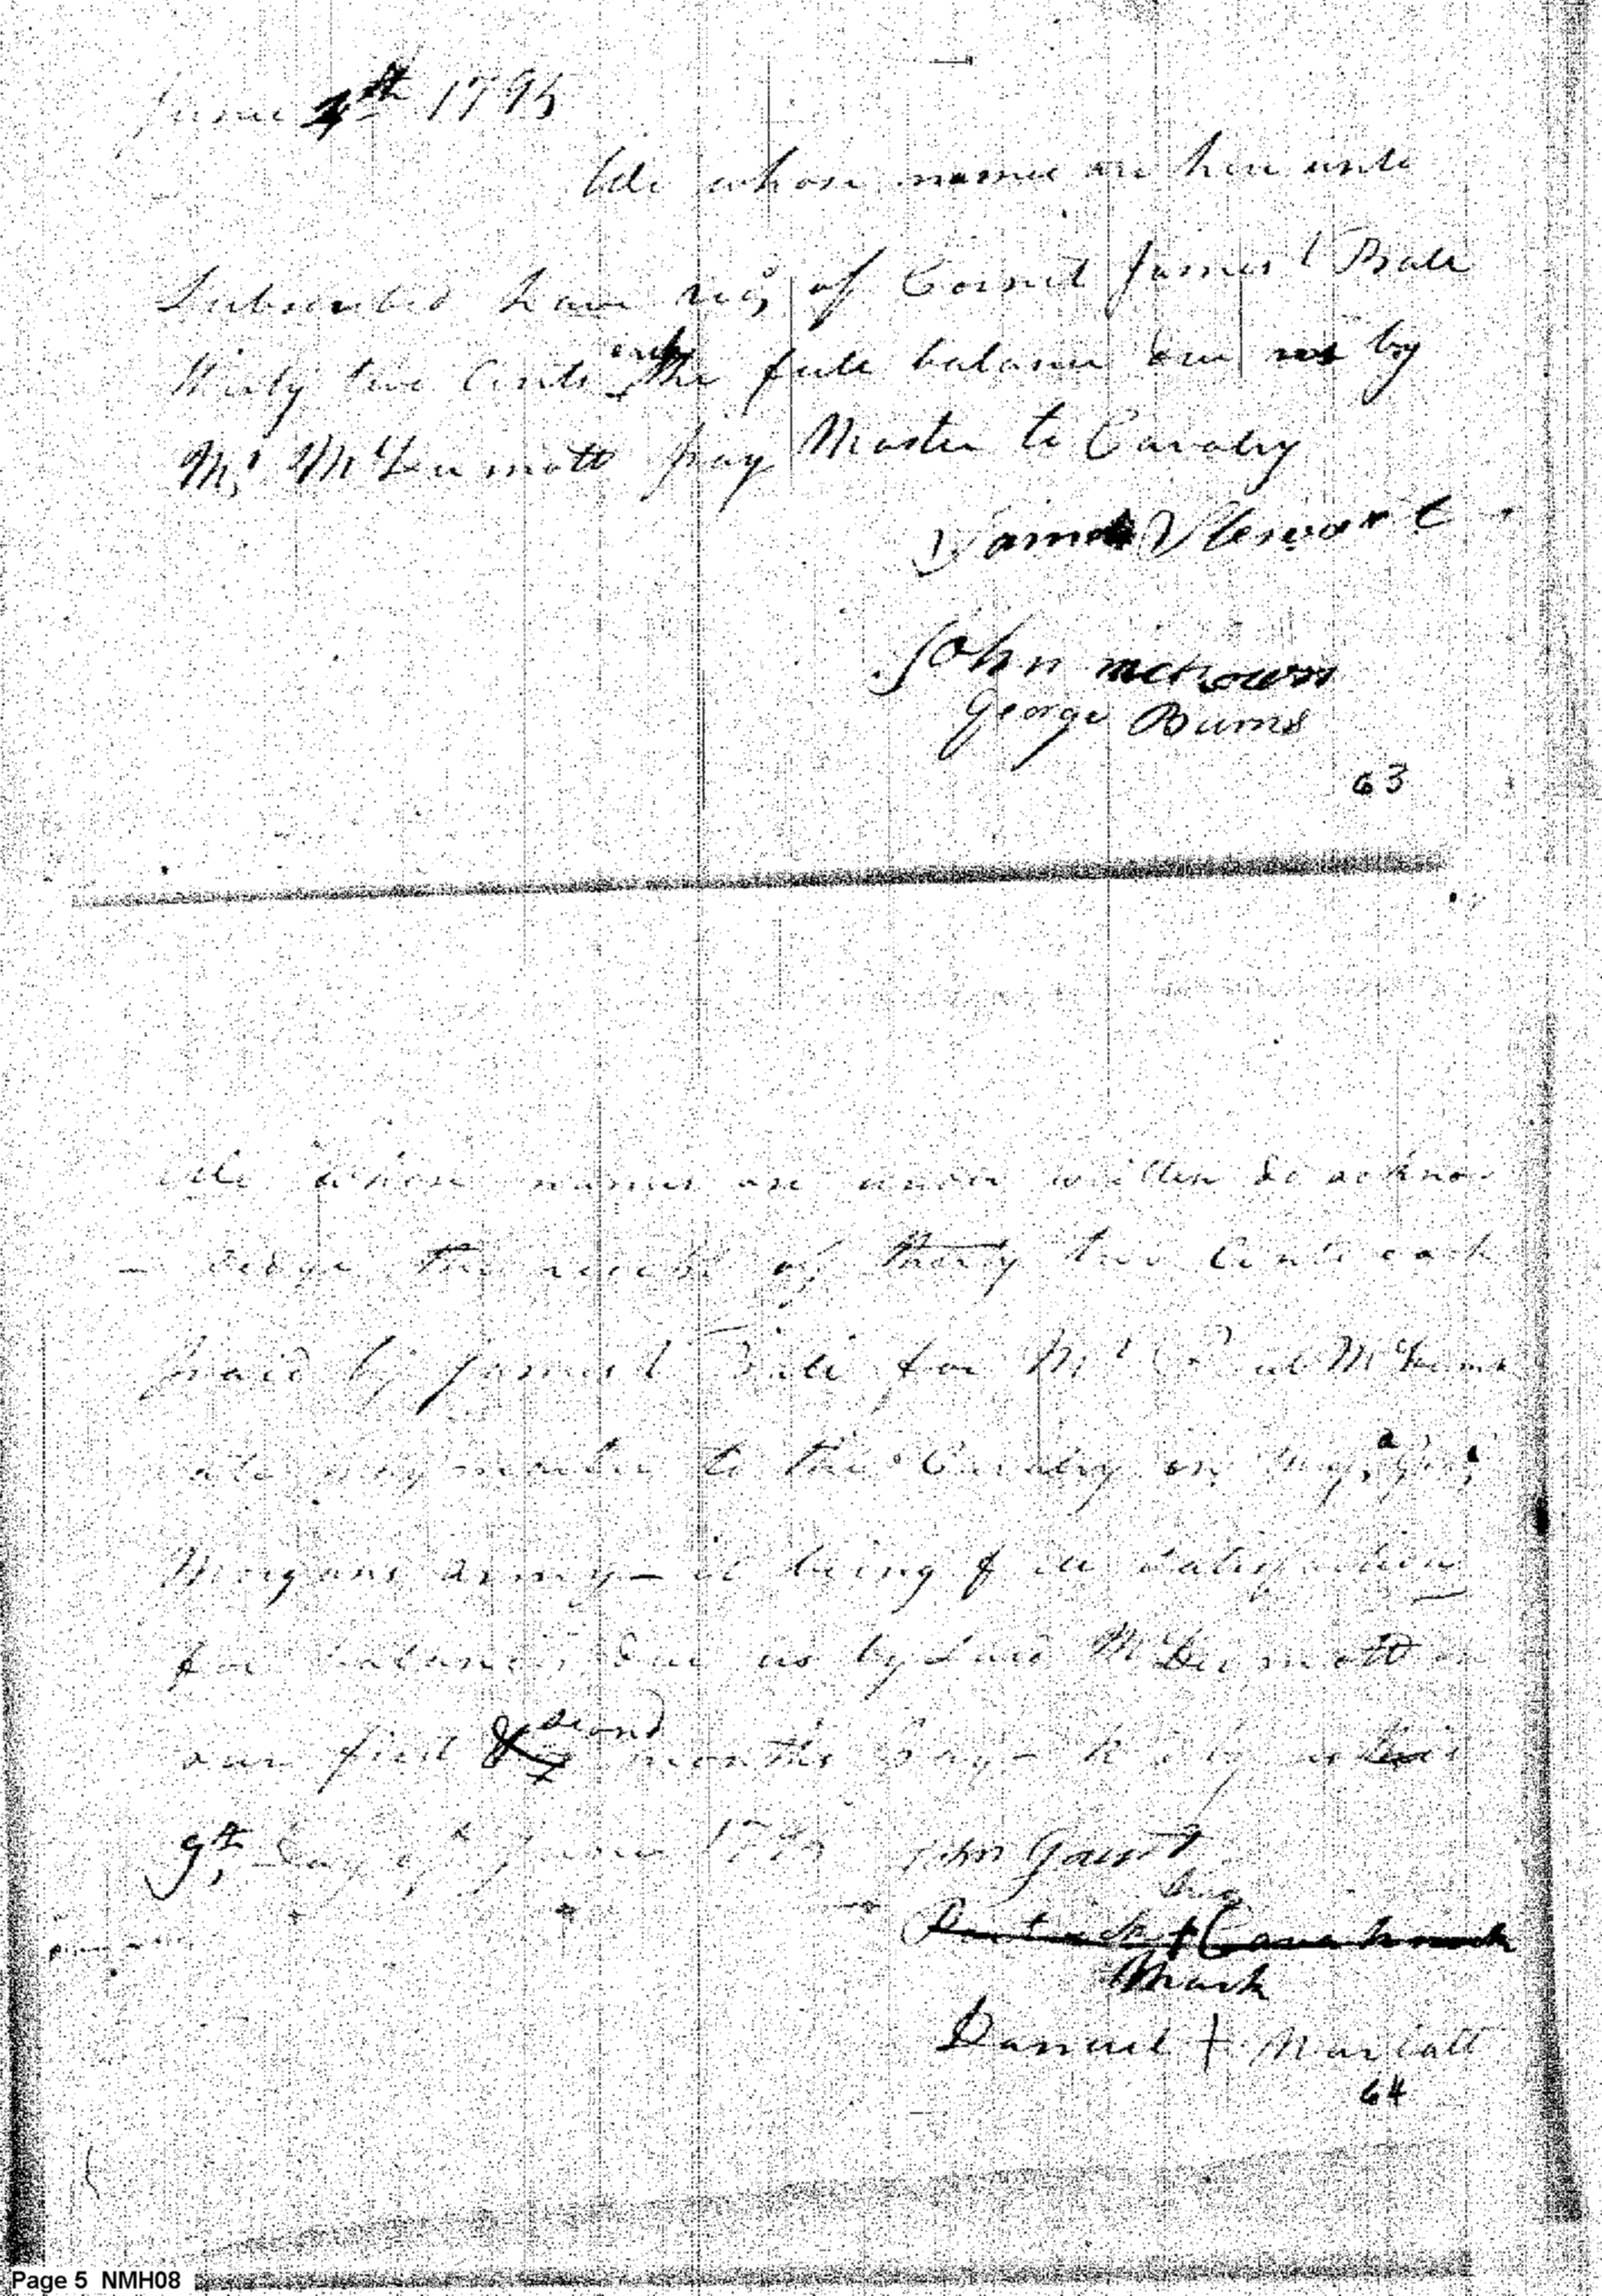 June 4th 1795
We whose names are here unto
Subscribed have recd, of Cornet James L Bale
thirty two Cents each the full balance due us by
Mr, McDermott pay Master to Cavalry
James Stewart
John mckown
George Burns
63
We whose names are under written do acknow
- ledge the receipt of thirty two Cents each
paid by James L for Mr Paul McDerm
ott paymaster to the Cavalry in Maja, Genl,
Morgans army - it being full satisfaction
for balances due us by said McDermott on
our first & second months Pay - by us this
9th, Day of June 1795 John Gaunt
his
Patrick + Cavanaugh
Mark
Daniel + Marlatt
64
Page 5 NMH08